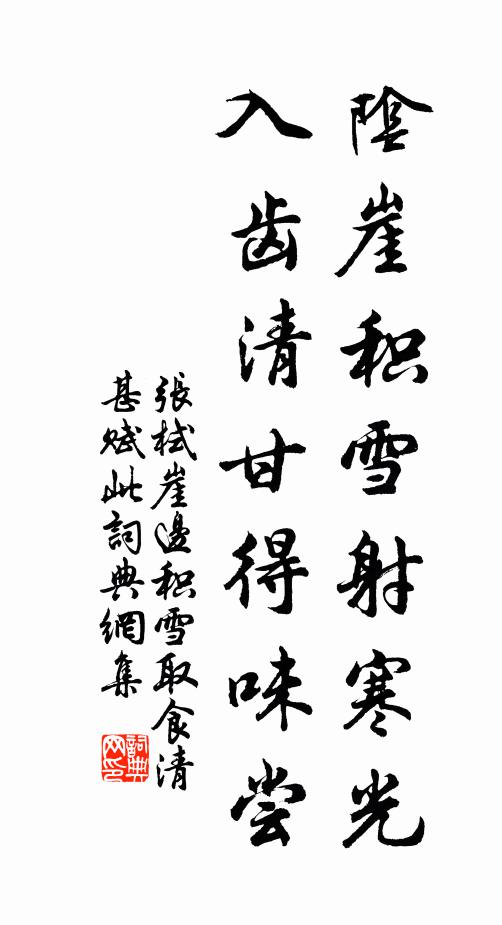 陰崖积雪射寒光
入齿清甘得味尝
張栻崖邊积雪取食清
甚赋此詞典網集
詞典
网印